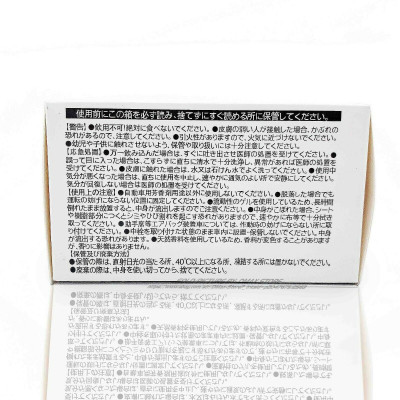 使用前にこの箱を必ず読み、捨てずにすぐ読める所に保管してください。
【警告】●飲用不可!絶対に食べないでください。●皮膚の弱い人が接触した場合、かぶれの
恐れがあるので、注意してください。●引火性がありますので、火気に近づけないでください。
●幼児や子供に触れさせないよう、保管や取り扱いには十分注意してください。
【応急処置】●万一飲み込んだ場合は、すぐに吐き出させ医師の処置を受けてください。●
誤って目に入った場合は、こすらずに直ちに清水で十分洗浄し、異常があれば医師の処置を
受けてください。●皮膚に触れた場合は、水又は石けん水でよく洗ってください。●使用中
気分が悪くなった場合は、直ちに使用を中止し、速やかに通気のよい所で安静にしてください。
気分が回復しない場合は医師の処置を受けてください。
【使用上の注意】●自動車用芳香剤用途以外に使用しないでください。●脱落した場合でも
運転の妨げにならない位置に固定してください。●流動性のゲルを使用しているため、長時間
倒れたまま放置すると、中身が流出しますのでご注意ください。●中身がこぼれた場合、シート
や樹脂部分につくとシミやひび割れを起こす恐れがありますので、速やかに布等で十分拭き
取ってください。●助手席等エアバッグ装着車については、作動時の妨げにならない所に取
り付けてください。●中栓を取り付けた状態のまま車内に設置・保管しないでください。中身
が流出する恐れがあります。●天然香料を使用しているため、香料が変色することがあります
が、香りに影響はありません。
【保管及び廃棄方法】
●保管の際は、直射日光の当たる所、40℃以上になる所、凍結する所には置かないでください。
●廃棄の際は、中身を使い切ってから、捨ててください。